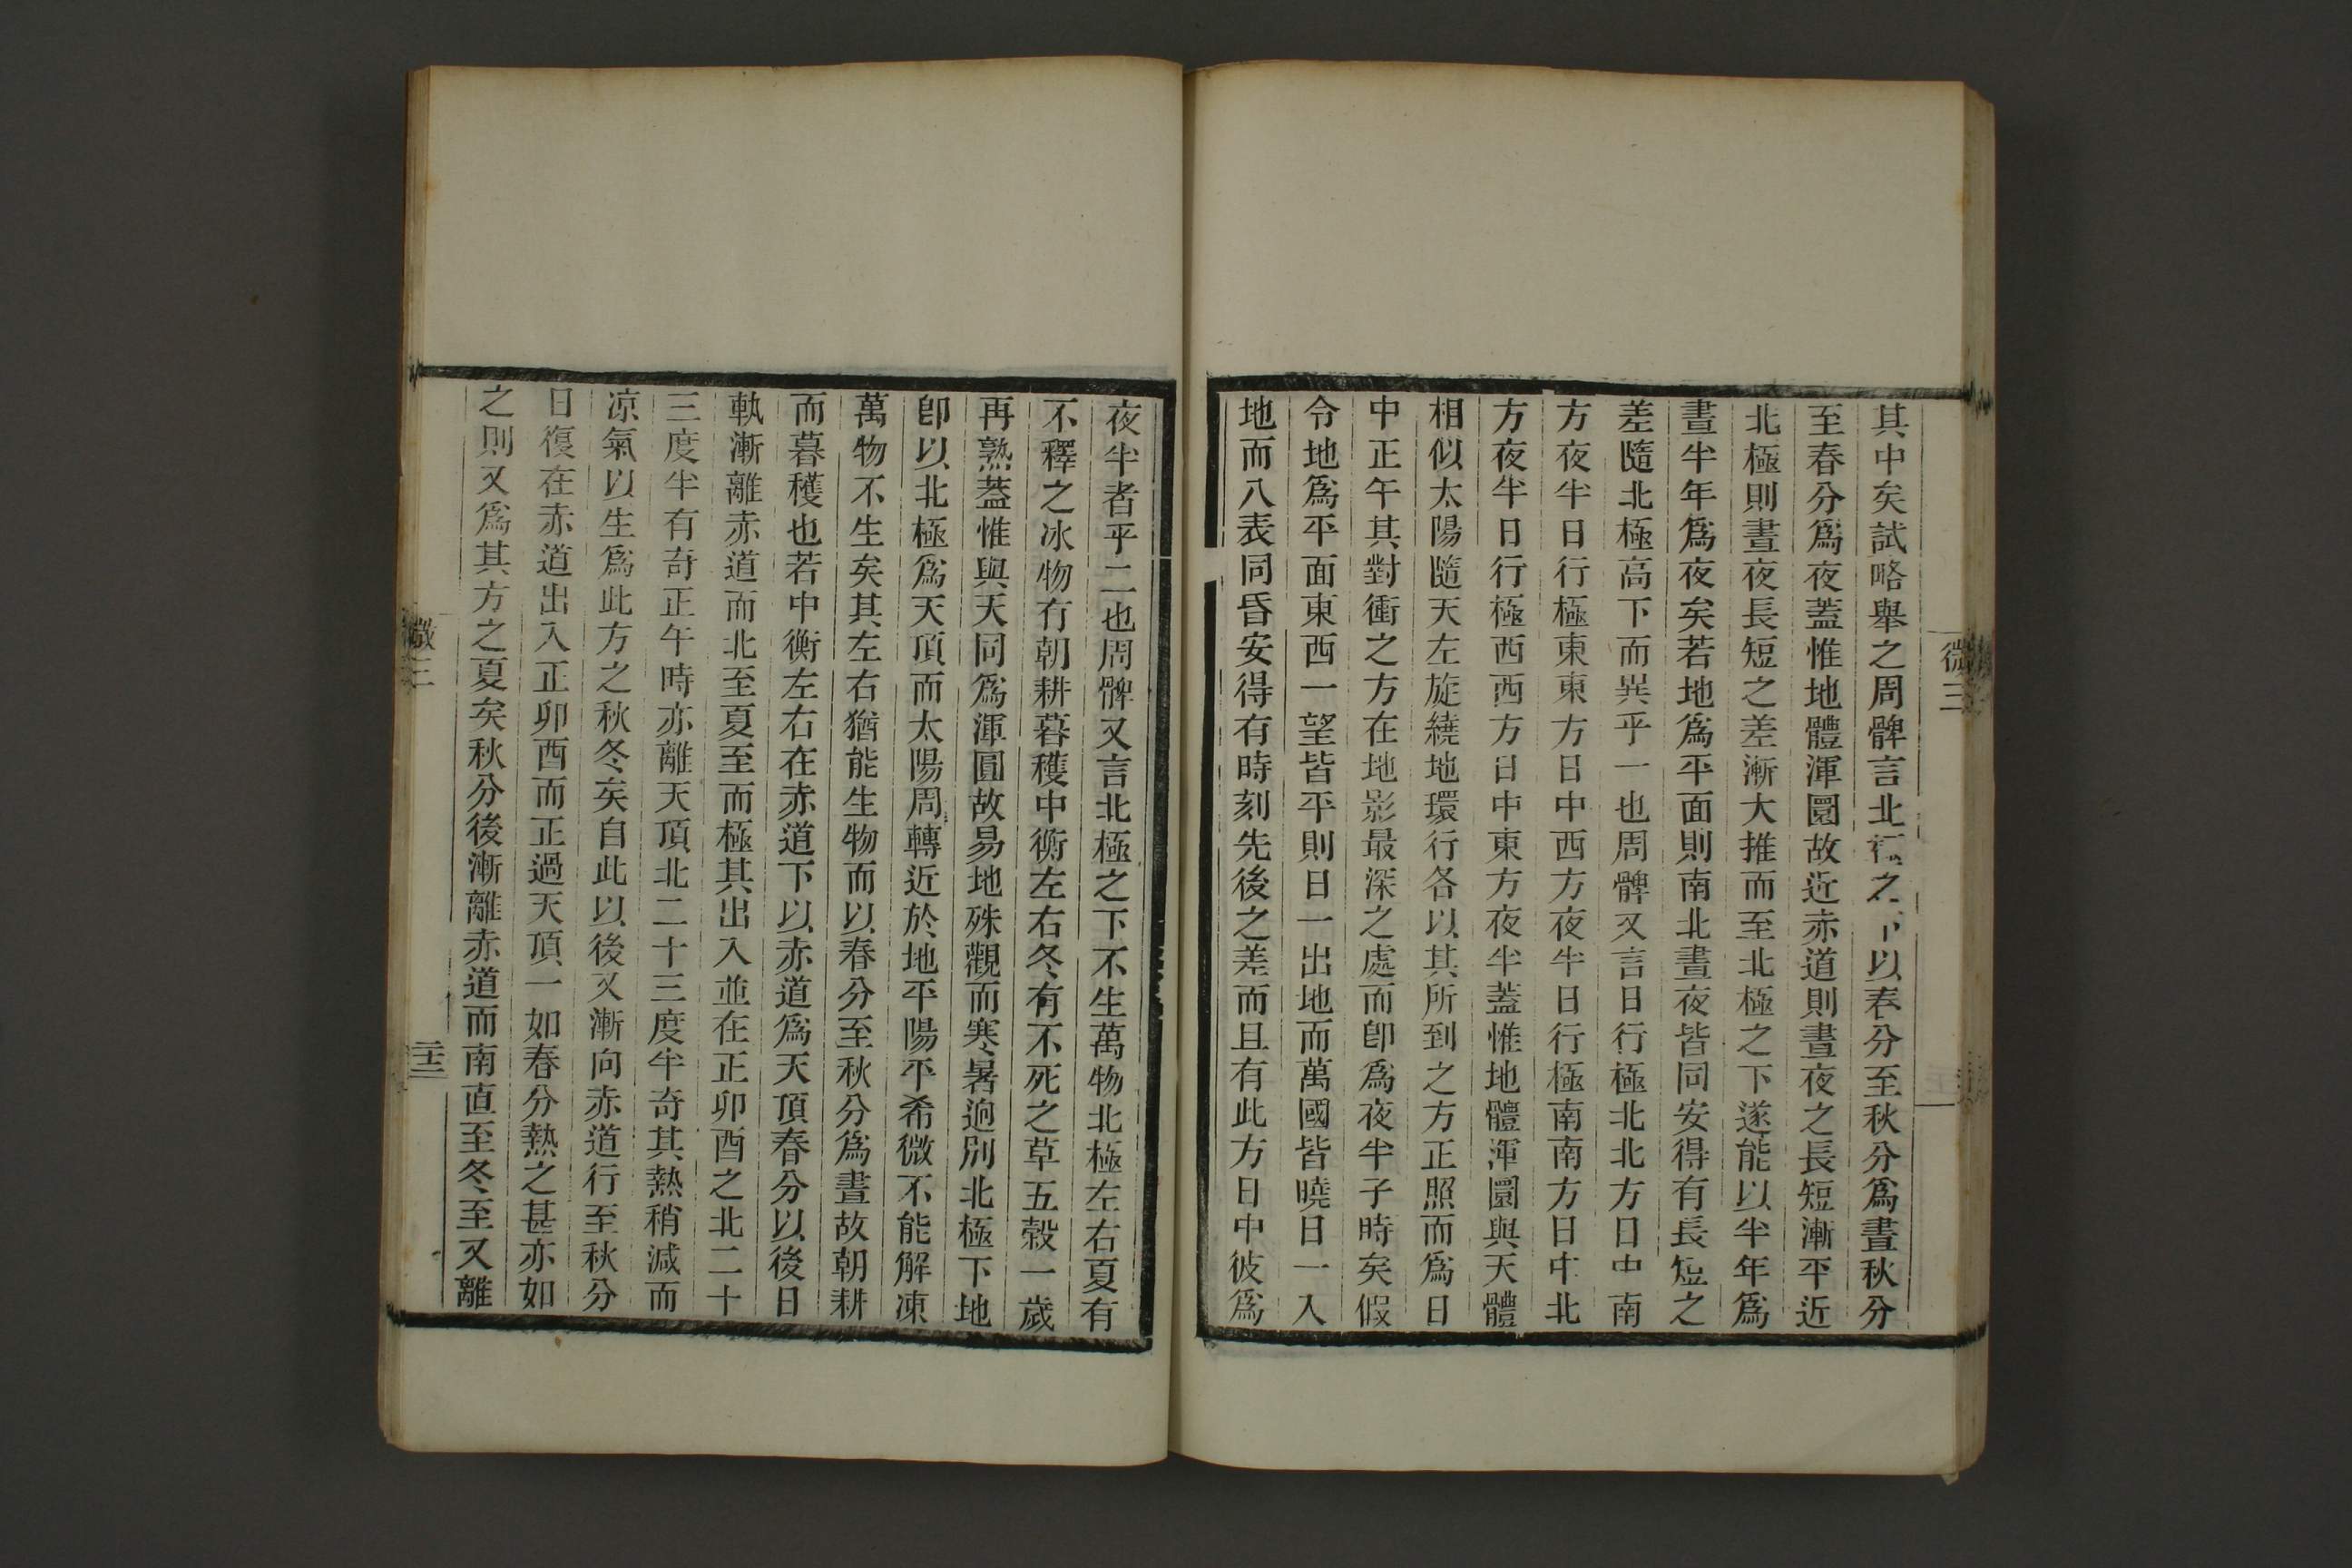 微三
其中矣試略舉之周髀言北極之下以春分至秋分爲晝秋分
至春分爲夜蓋惟地體渾圜故近赤道則晝夜之長短漸平近
北極則晝夜長短之差漸大推而至北極之下遂能以半年爲
晝半年爲夜矣若地爲平面則南北晝夜皆同安得有長短之
差隨北極高下而異乎一也周髀又言日行極北北方日中南
方夜半日行極東東方日中西方夜半日行極南南方日中北
方夜半日行極西西方日中東方夜半蓋惟地體渾圜與天體
相似太陽隨天左旋繞地環行各以其所到之方正照而爲日
中正午其對衝之方在地影最深之處而卽爲夜半子時矣假
令地爲平面東西一望皆平則日一出地而萬國皆曉日一入
地而八表同昏安得有時刻先後之差而且有此方日中彼爲
夜半者乎二也周髀又言北極之下不生萬物北極左右夏有
不釋之冰物有朝耕暮穫中衡左右冬有不死之草五穀一歲
再熟蓋惟與天同爲渾圓故易地殊觀而寒暑逈別北極下地
卽以北極爲天頂而太陽周轉近於地平陽平希微不能解凍
萬物不生矣其左右猶能生物而以春分至秋分爲晝故朝耕
而暮穫也若中衡左右在赤道下以赤道爲天頂春分以後日
軌漸離赤道而北至夏至而極其出入並在正卯酉之北二十
三度半有奇正午時亦離天頂北二十三度半奇其熱稍減而
凉氣以生爲此方之秋冬矣自此以後又漸向赤道行至秋分
日復在赤道出入正卯酉而正過天頂一如春分熱之甚亦如
之則又爲其方之夏矣秋分後漸離赤道而南直至冬至又離
微三